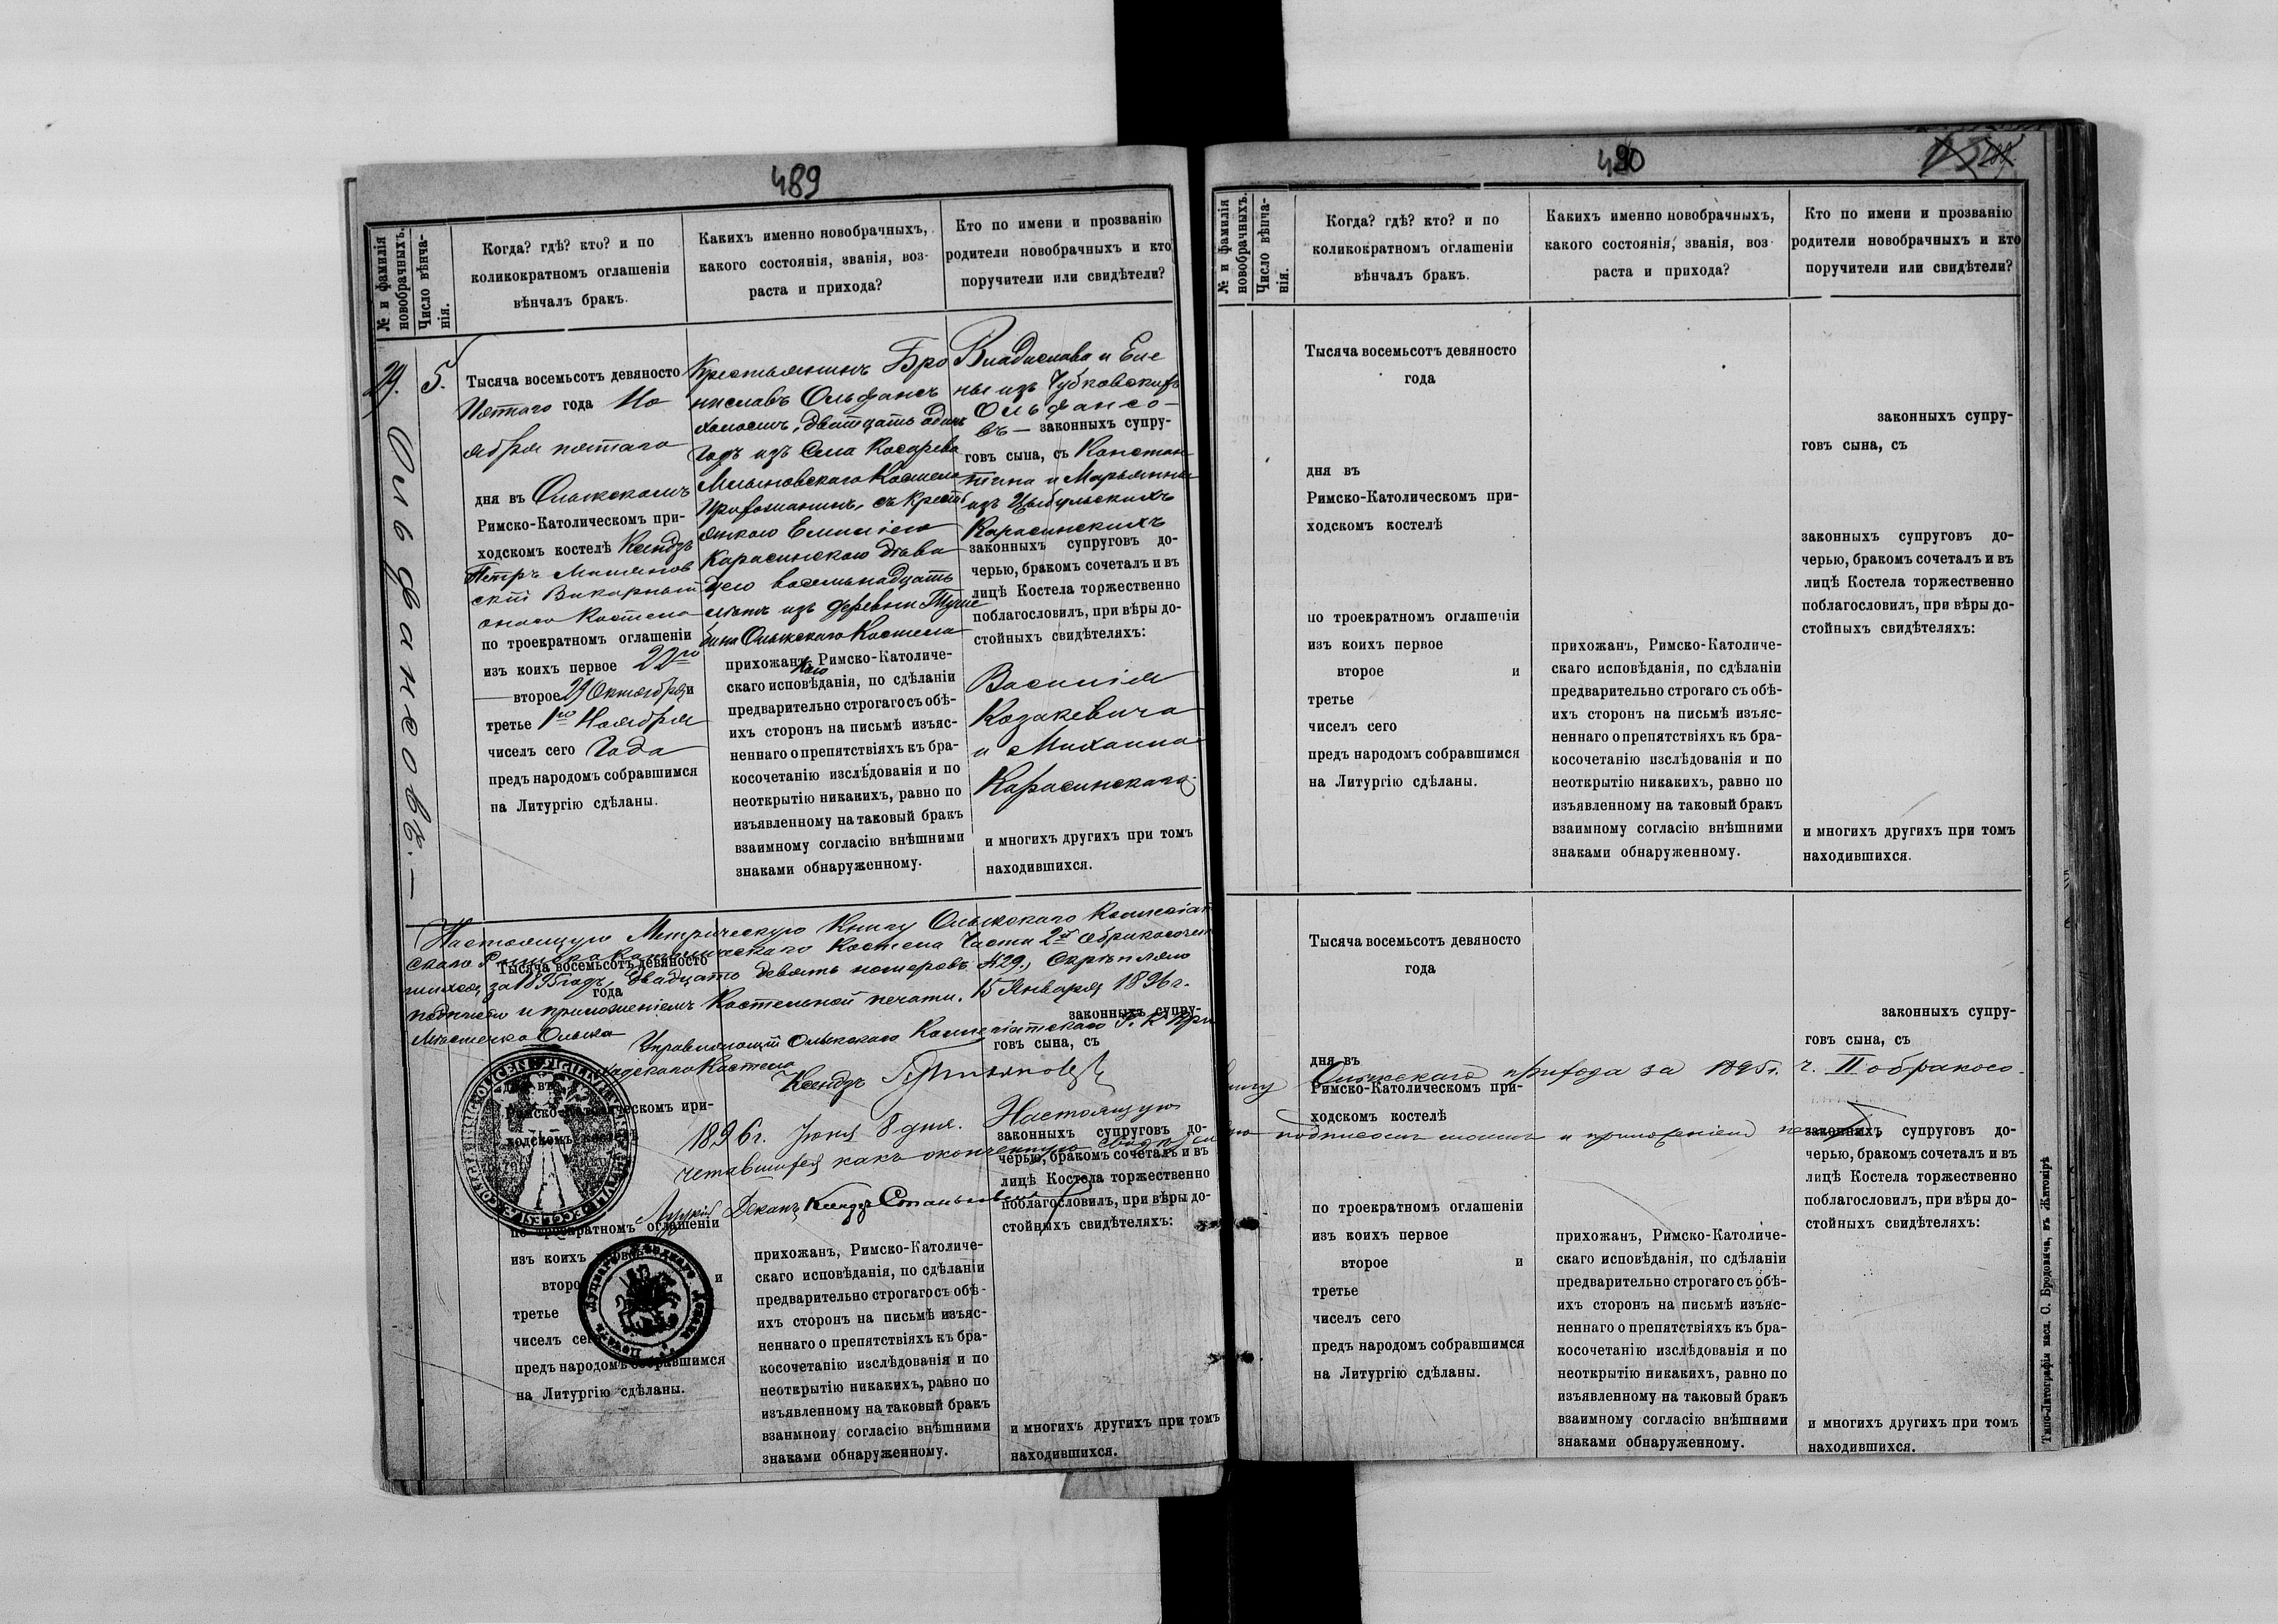 489
№ и фамилія новобрачныхъ.
Число вѣнча-
нія.
Когда? гдѣ? кто? и по
коликократномъ оглашеніи
вѣнчалъ бракъ.
Какихъ именно новобрачныхъ,
какого состоянія, званія, воз-
раста и прихода?
Кто по имени и прозванію
родители новобрачныхъ и кто
поручители или свидѣтели?
29.
Ольфансовъ. —
5.
Тысяча восемьсотъ девяносто
Пятаго года Но
ября пятаго
дня въ Олыкскомъ
Римско-Католическомъ при-
ходскомъ костелѣ Ксендзъ
Петръ
скій Викарный
онаго Костела
по троекратномъ оглашеніи
изъ коихъ первое 22го
второе 29 Октября и
третье 1го Ноября
чиселъ сего Года
предъ народомъ собравшимся
на Литургію сдѣланы.
Крестьянинъ Бро
ниславъ Ольфансъ
холостъ, двадцать одинъ
Годъ изъ Села Косарева
Млыновскаго Костела
Прихожанинъ, съ Кресть
янкою Емилією
Карасинскою дѣви
цею восемьнадцать
лѣтъ изъ деревни
Олыкскаго Костела
прихожанъ, Римско-Католиче-
скаго исповѣданія, по сдѣланіи
предварительно строгаго съ обѣ-
ихъ сторонъ на письмѣ изъяс-
неннаго о препятствіяхъ къ бра-
косочетанію изслѣдованія и по
неоткрытію никакихъ, равно по
изъявленному на таковый бракъ
взаимному согласію внѣшними
знаками обнаруженному.
Владислава и Еле
ны изъ Чубковскихъ
Ольфансо-
въ — законныхъ супру-
говъ сына, съ Констан
тина и Марьянны
изъ Цыбульскихъ
Карасинскихъ
законныхъ супруговъ до-
черью, бракомъ сочеталъ и въ
лицѣ Костела торжественно
поблагословилъ, при вѣры до-
стойныхъ свидѣтеляхъ:
Василія
Козакевича
и Михаила
Карасинскаго
и многихъ другихъ при томъ
находившихся.
Настоящую Метрическую Книгу Олыкскаго Коллегіат
скаго Римско Католическаго Костела Части 2й о бракосочет
шихся, за 1895 годъ, двадцать девять номеровъ №29., Скрѣпляю
подписью и приложеніемъ Костельной печати. 15 Января 1896 г.
Мѣстечко Олыка
Управляющій Олыкскаго Коллегіатскаго Р. К. При
ходскаго Костела
Ксендзъ
1896 г. Іюня 8 дня. Настоящую
четавшихся какъ оконченную
Луцкій Деканъ Ксендзъ
Тысяча восемьсотъ девяносто
года
дня въ
Римско-Католическомъ при-
ходскомъ костелѣ
по троекратномъ оглашеніи
изъ коихъ первое
второе и
третье
чиселъ сего
предъ народомъ собравшимся
на Литургію сдѣланы.
прихожанъ, Римско-Католиче-
скаго исповѣданія, по сдѣланіи
предварительно строгаго съ обѣ-
ихъ сторонъ на письмѣ изъяс-
неннаго о препятствіяхъ къ бра-
косочетанію изслѣдованія и по
неоткрытію никакихъ, равно по
изъявленному на таковый бракъ
взаимному согласію внѣшними
знаками обнаруженному.
законныхъ супру-
говъ сына, съ
законныхъ супруговъ до-
черью, бракомъ сочеталъ и въ
лицѣ Костела торжественно
поблагословилъ, при вѣры до-
стойныхъ свидѣтеляхъ:
и многихъ другихъ при томъ
находившихся.
490
№ и фамилія новобрачныхъ.
Число вѣнча-
нія.
Когда? гдѣ? кто? и по
коликократномъ оглашеніи
вѣнчалъ бракъ.
Какихъ именно новобрачныхъ,
какого состоянія, званія, воз-
раста и прихода?
Кто по имени и прозванію
родители новобрачныхъ и кто
поручители или свидѣтели?
Тысяча восемьсотъ девяносто
года
дня въ
Римско-Католическомъ при-
ходскомъ костелѣ
по троекратномъ оглашеніи
изъ коихъ первое
второе и
третье
чиселъ сего
предъ народомъ собравшимся
на Литургію сдѣланы.
прихожанъ, Римско-Католиче-
скаго исповѣданія, по сдѣланіи
предварительно строгаго съ обѣ-
ихъ сторонъ на письмѣ изъяс-
неннаго о препятствіяхъ къ бра-
косочетанію изслѣдованія и по
неоткрытію никакихъ, равно по
изъявленному на таковый бракъ
взаимному согласію внѣшними
знаками обнаруженному.
законныхъ супру-
говъ сына, съ
законныхъ супруговъ до-
черью, бракомъ сочеталъ и въ
лицѣ Костела торжественно
поблагословилъ, при вѣры до-
стойныхъ свидѣтеляхъ:
и многихъ другихъ при томъ
находившихся.
Тысяча восемьсотъ девяносто
года
дня въ
Олыкскаго прихода за 1895 г. ч. II о бракосо-
Римско-Католическомъ при-
ходскомъ костелѣ
подписомъ моимъ и приложеніемъ
по троекратномъ оглашеніи
изъ коихъ первое
второе и
третье
чиселъ сего
предъ народомъ собравшимся
на Литургію сдѣланы.
прихожанъ, Римско-Католиче-
скаго исповѣданія, по сдѣланіи
предварительно строгаго съ обѣ-
ихъ сторонъ на письмѣ изъяс-
неннаго о препятствіяхъ къ бра-
косочетанію изслѣдованія и по
неоткрытію никакихъ, равно по
изъявленному на таковый бракъ
взаимному согласію внѣшними
знаками обнаруженному.
законныхъ супру-
говъ сына, съ
законныхъ супруговъ до-
черью, бракомъ сочеталъ и въ
лицѣ Костела торжественно
поблагословилъ, при вѣры до-
стойныхъ свидѣтеляхъ:
и многихъ другихъ при томъ
находившихся.
Типо-Литографія насл. С. Бродовича, въ Житомірѣ